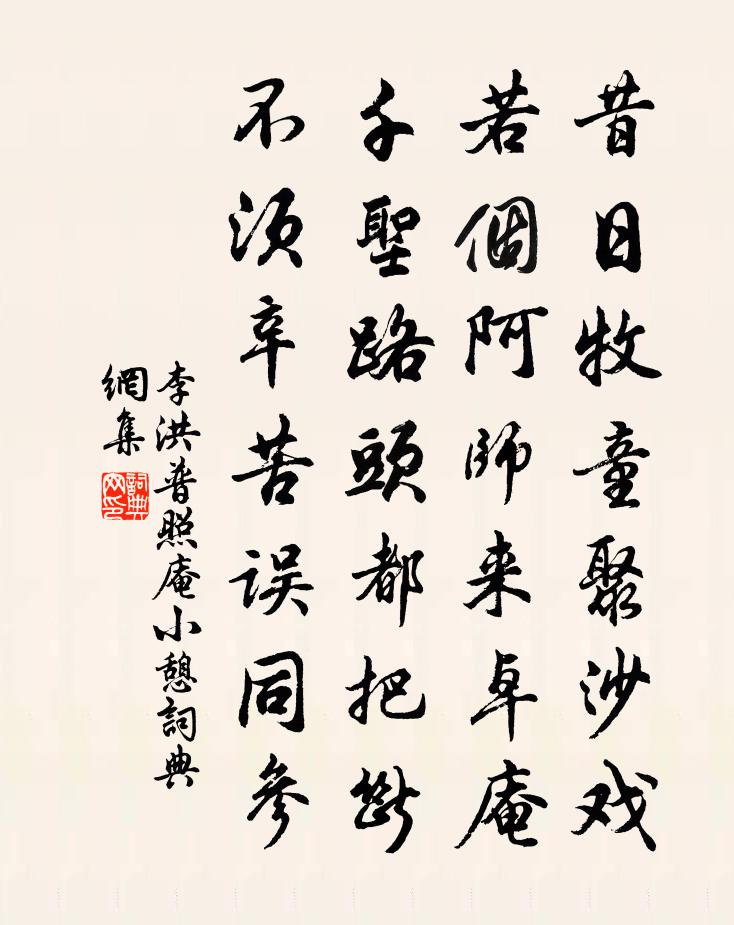 昔日牧童聚沙戏
若個阿師来卓庵
千聖路頭都把斷
不须辛苦误同參
李洪普照庵小憩詞典
網集
詞典网印